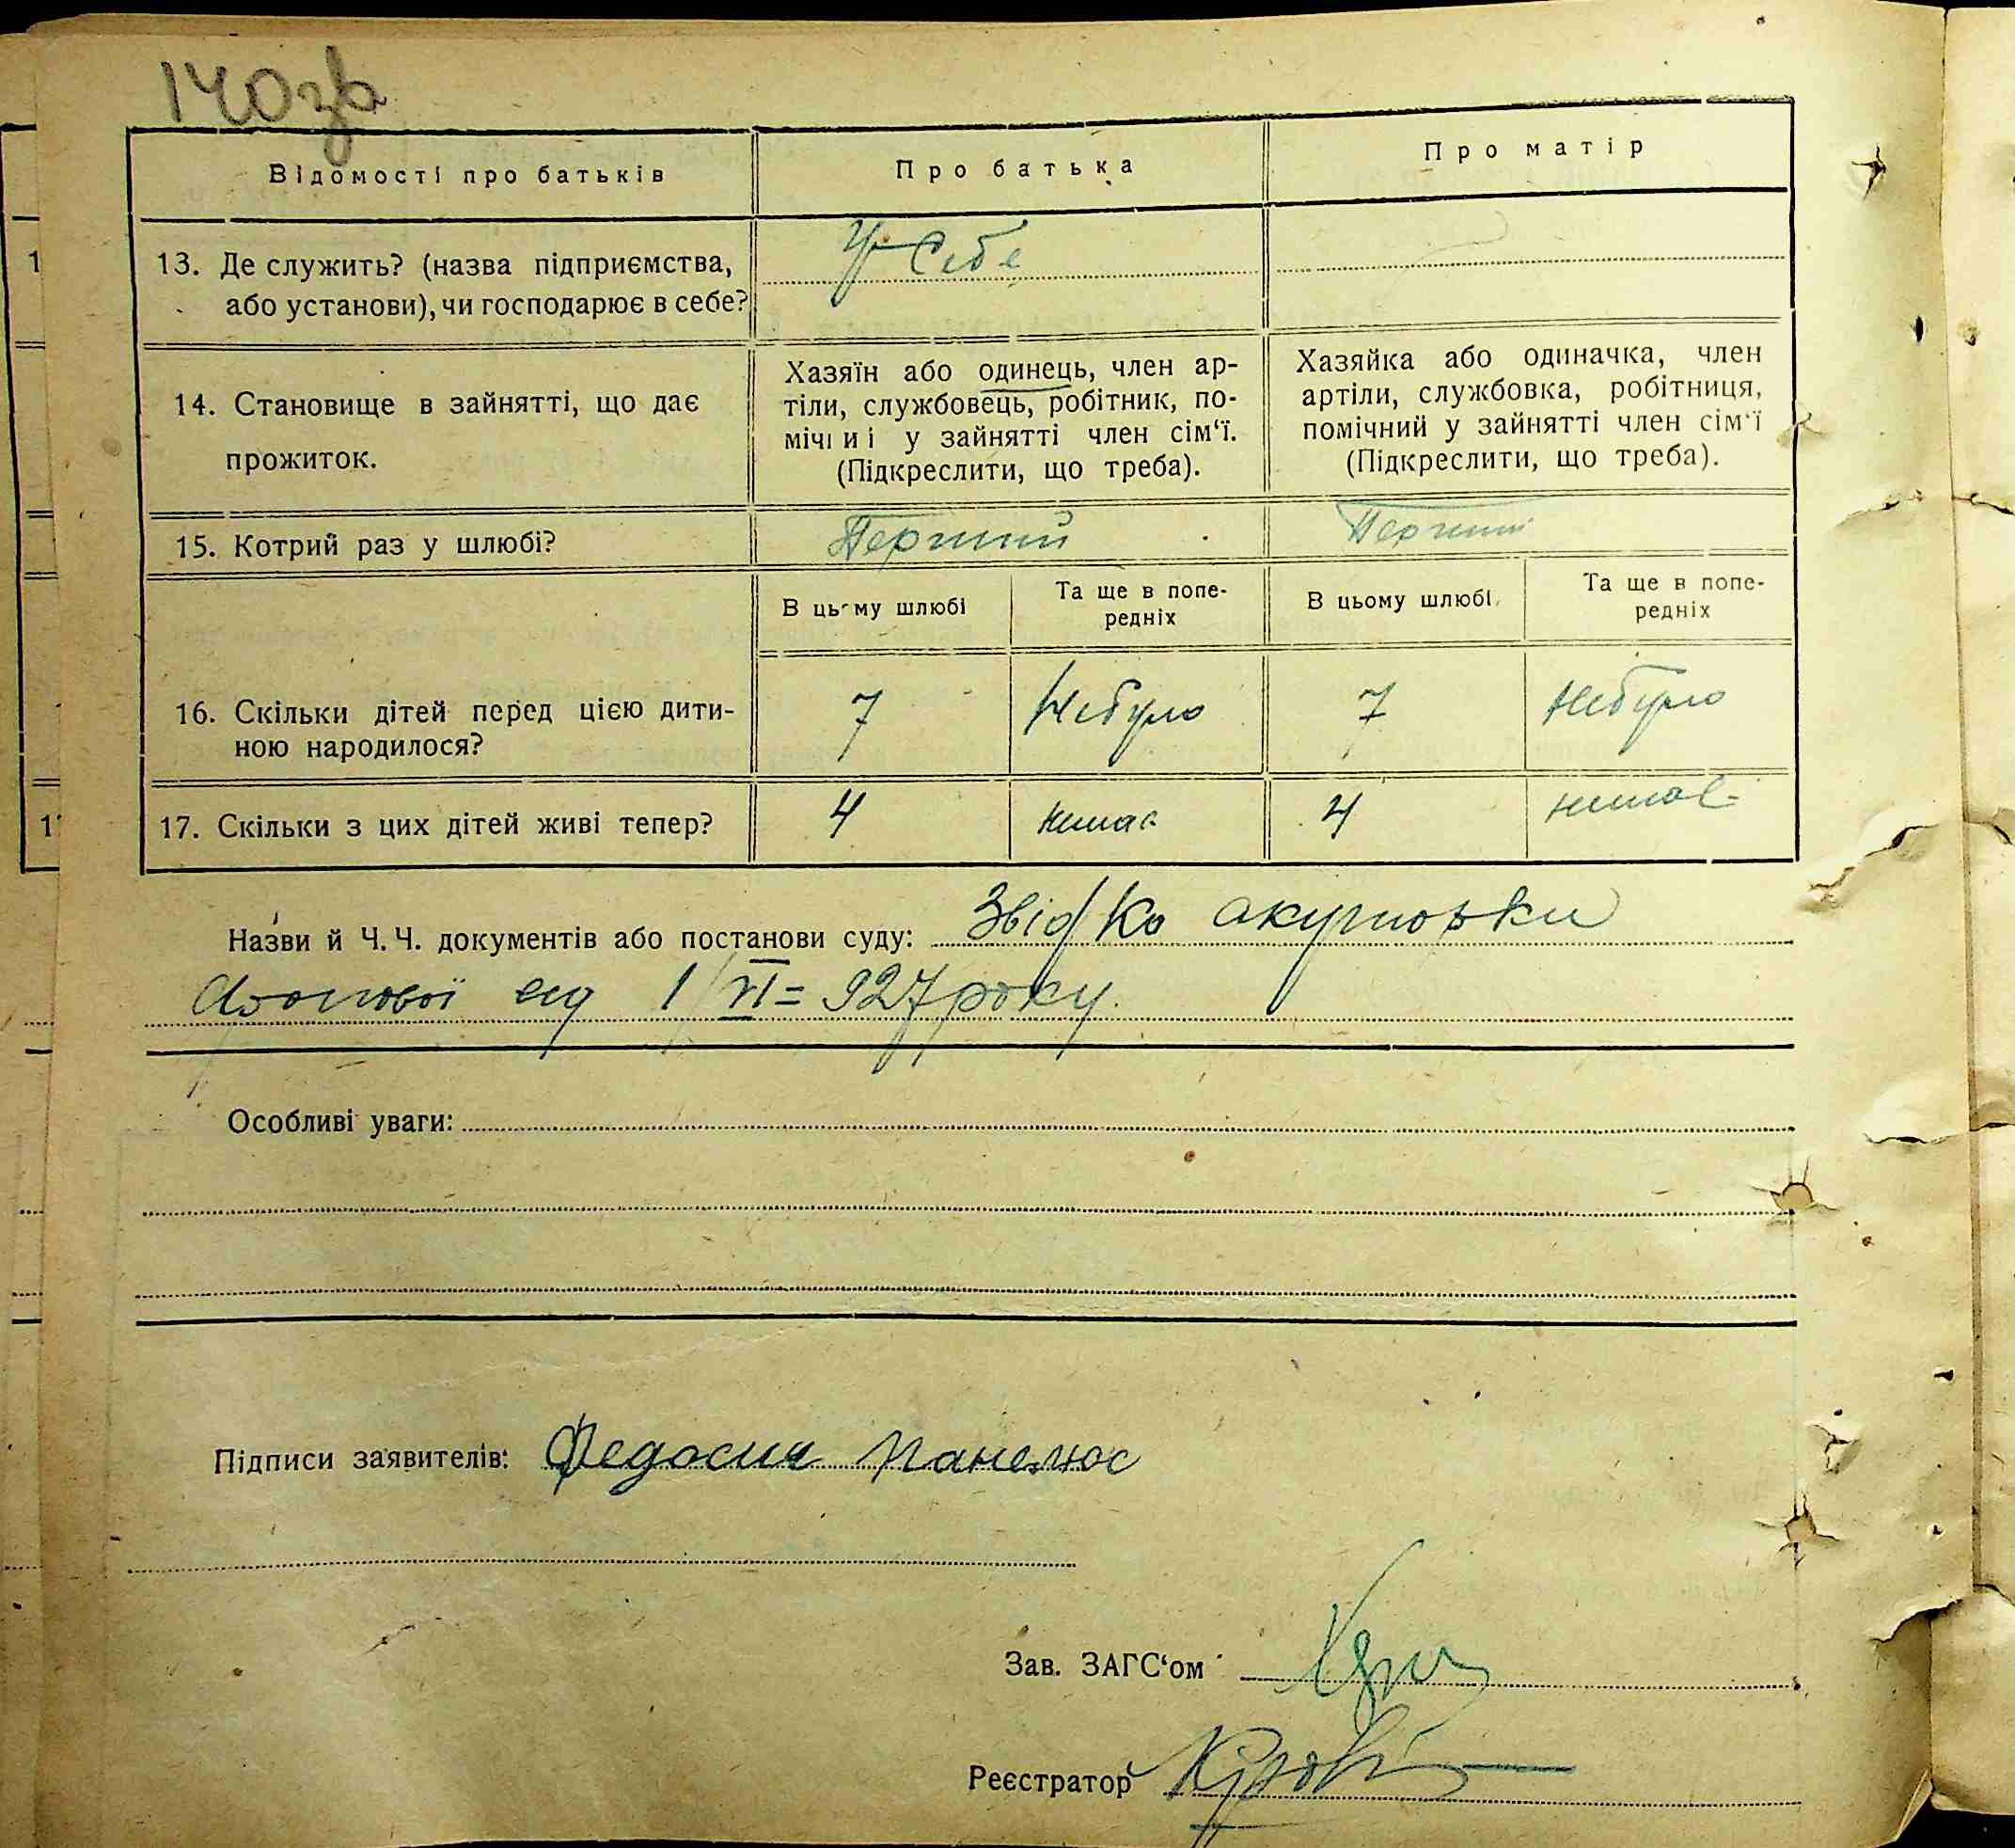 140зв
Відомості про батьків
Про батька
Про матір
13. Де служить? (назва підприємства,
або установи), чи господарює в себе?
У себе
14. Становище в зайнятті, що дає
прожиток.
Хазяїн або одинець, член ар-
тіли, службовець, робітник, по-
мічний у зайнятті член сім‘ї.
(Підкреслити, що треба).
Хазяйка або одиначка, член
артіли, службовка, робітниця,
помічний у зайнятті член сім‘ї
(Підкреслити, що треба).
15. Котрий раз у шлюбі?
Перший
Перший
В цьому шлюбі
Та ще в попе-
редніх
В цьому шлюбі
Та ще в попе-
редніх
16. Скільки дітей перед цією дити-
ною народилося?
7
Небуло
7
Небуло
17. Скільки з цих дітей живі тепер?
4
немає
4
немає
Назви й Ч. Ч. документів або постанови суду: акушорки
1/VI=927 року.
Особливі уваги:
Підписи заявителів:
Зав. ЗАГС‘ом
Реєстратор